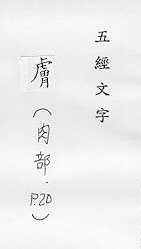 五經文字
膚
(肉部.P.20)